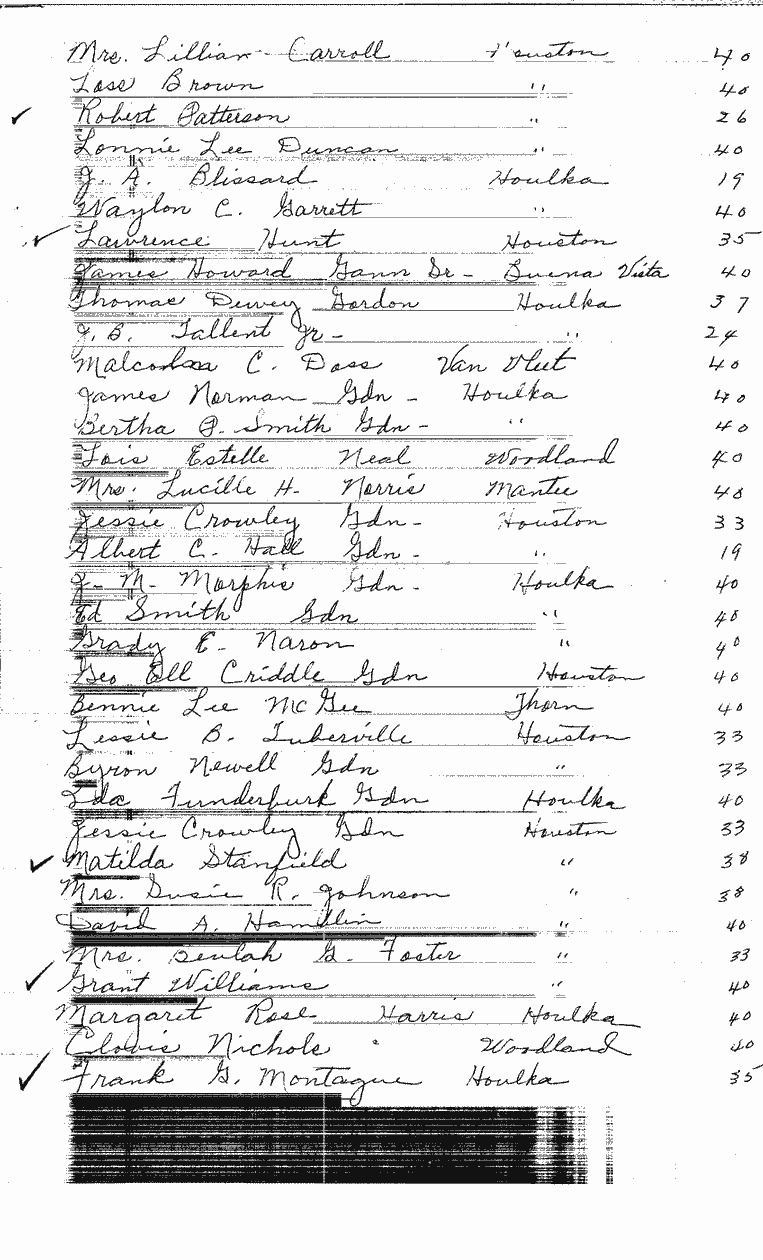 Mrs. Lillian Carroll Houston 40
Loss Brown " 40
✓ Robert Patterson " 26
Lonnie Lee Duncan " 40
J. A. Blissard Houlka 19
Waylon C. Garrett " 40
✓ Lawrence Hunt Houston 35
James Howard Gann Sr - Buena Vista 40
Thomas Dewey Gordon Houlka 37
J. B. Tallent Jr - " 24
C. Doss Van Vleet 40
James Norman Gdn - Houlka 40
Bertha P. Smith Gdn - " 40
Lois Estelle Neal Woodland 40
Mrs. Lucille H. Norris Mantee 40
Jessie Crowley Gdn - Houston 33
Albert C. Hall Gdn - " 19
J. M. Morphis Gdn - Houlka 40
Ed Smith Gdn " 40
Grady E. Naron " 40
Geo Ell Criddle Gdn Houston 40
Bennie Lee McGee Thorn 40
Lessie B. Tuberville Houston 33
Byron Newell Gdn " 33
Ida Funderburk Gdn Houlka 40
Jessie Crowley Gdn Houston 33
✓ Matilda Stanfield " 38
Mrs. Susie R. Johnson " 38
David A. Hamblin " 40
Mrs. Beulah G. Foster " 33
✓ Grant Williams " 40
Margaret Rose Harris Houlka 40
Clovis Nichols Woodland 40
✓ Frank G. Montague Houlka 35